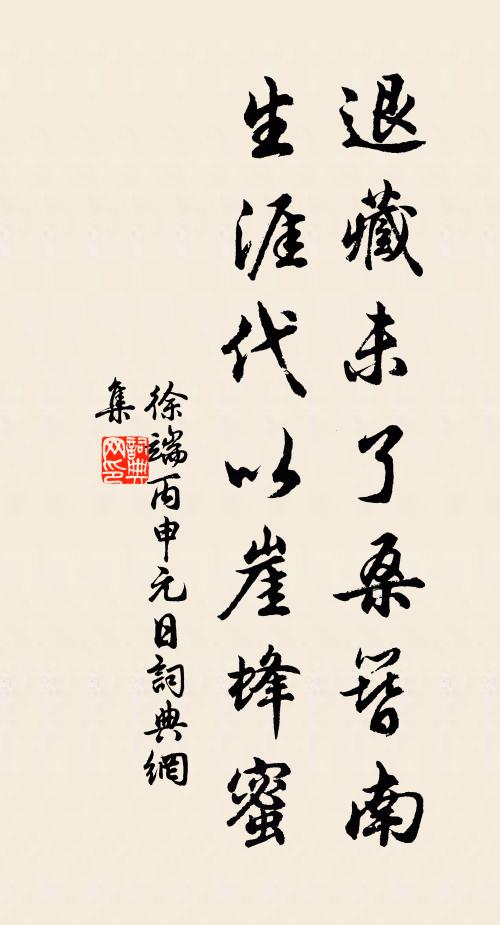 退藏未了桑簪南
生涯代以崖蜂蜜
徐端丙申元日詞典網
集
詞典網印